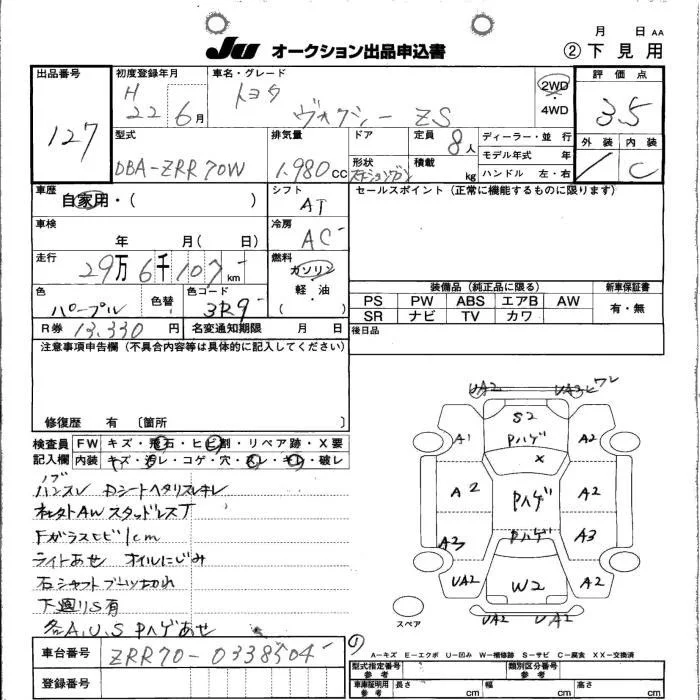 月 日 AA
JU オークション出品申込書 ② 下見用
出品番号 初度登録年月 車名・グレード 評価点
127 H 22 6月 トヨタ ヴォクシー ZS 2WD ・ 4WD 3.5
型式 排気量 ドア 定員 8人 ディーラー・並 行 外装 内装
DBA-ZRR70W 1.980cc 形状 ステーションワゴン 積載 kg モデル年式 年 C
ハンドル 左・右
車歴 自家用・( ) シフト AT セールスポイント(正常に機能するものに限ります)
車検 年 月( 日) 冷房 AC
走行 29万6千107km 燃料 ガソリン 軽・油 ( )
装備品(純正品に限る) 新車保証書
色 パープル 色替 色コード 3R9
PS PW ABS エアB AW 有・無
SR ナビ TV カワ
R券 13.330円 名変通知期限 月 日 後日品
注意事項申告欄(不具合内容等は具体的に記入してください)
修復歴 有 〔箇所 〕
検査員 FW キズ・飛石・ヒビ割・リペア跡・X要
記入欄 内装 キズ・汚レ・コゲ・穴・スレ・キレ・破レ
ノブ
ハンスレ Dシートヘタリスレキレ
社外AW スタッドレスT
Fガラスヒビ1cm
ライトあせ オイルにじみ
右シャフトブーツ切れ
下廻りS有
各A.U.S Pハゲあせ
UA2 UA3ヒワレ
S2
Pハゲ
A1 A2
X
A2 Pハゲ A2
A3 Pハゲ A3
UA2 W2 A2
UA2 UA2
スペア
車台番号 ZRR70-0338504
登録番号
A−キズ E−エクボ U−凹み W−補修跡 S−サビ C−腐食 XX−交換済
型式指定番号 参考 類別区分番号 参考
車庫証明用 参考 長さ cm 幅 cm 高さ cm